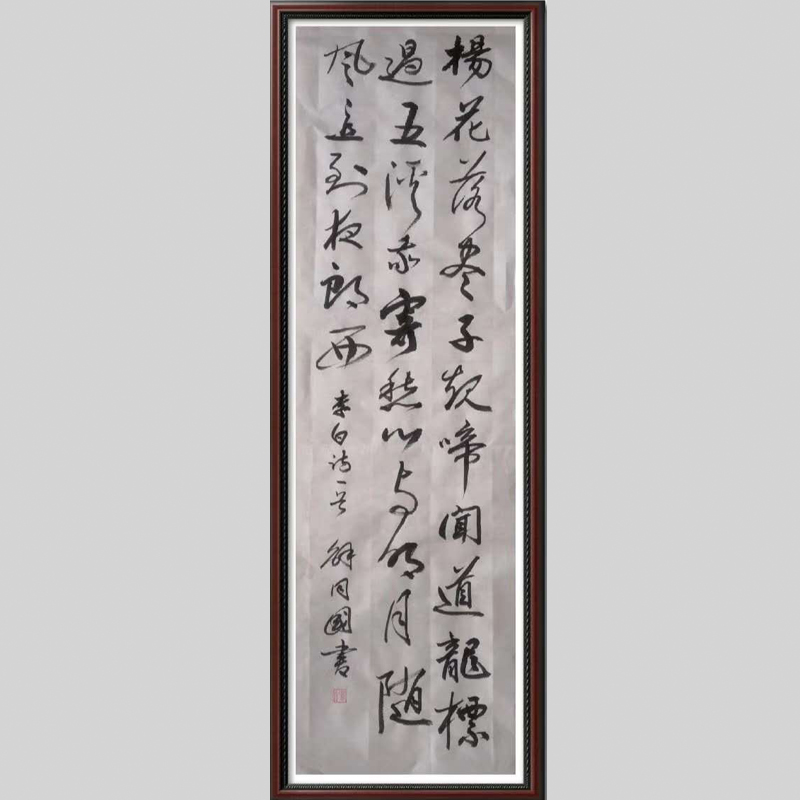 楊花落尽子規啼聞道龍標
過五溪我寄愁心与明月随
風直到夜郎西
李白诗一首 解同國書